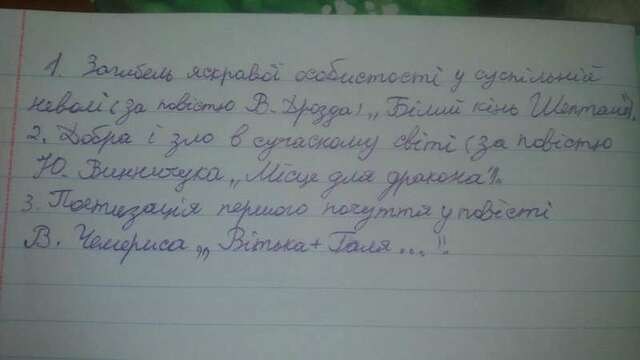 1. Загибель яскравої особистості у суспільній
неволі (за повістю В. Дрозда) „Білий кінь Шептало").
2. Добра і зло в сучасному світі (за повістю
Ю. Винничука „Місце для дракона").
3. Поетизація першого почуття у повісті
В. Чемериса „Вітька + Галя ...".